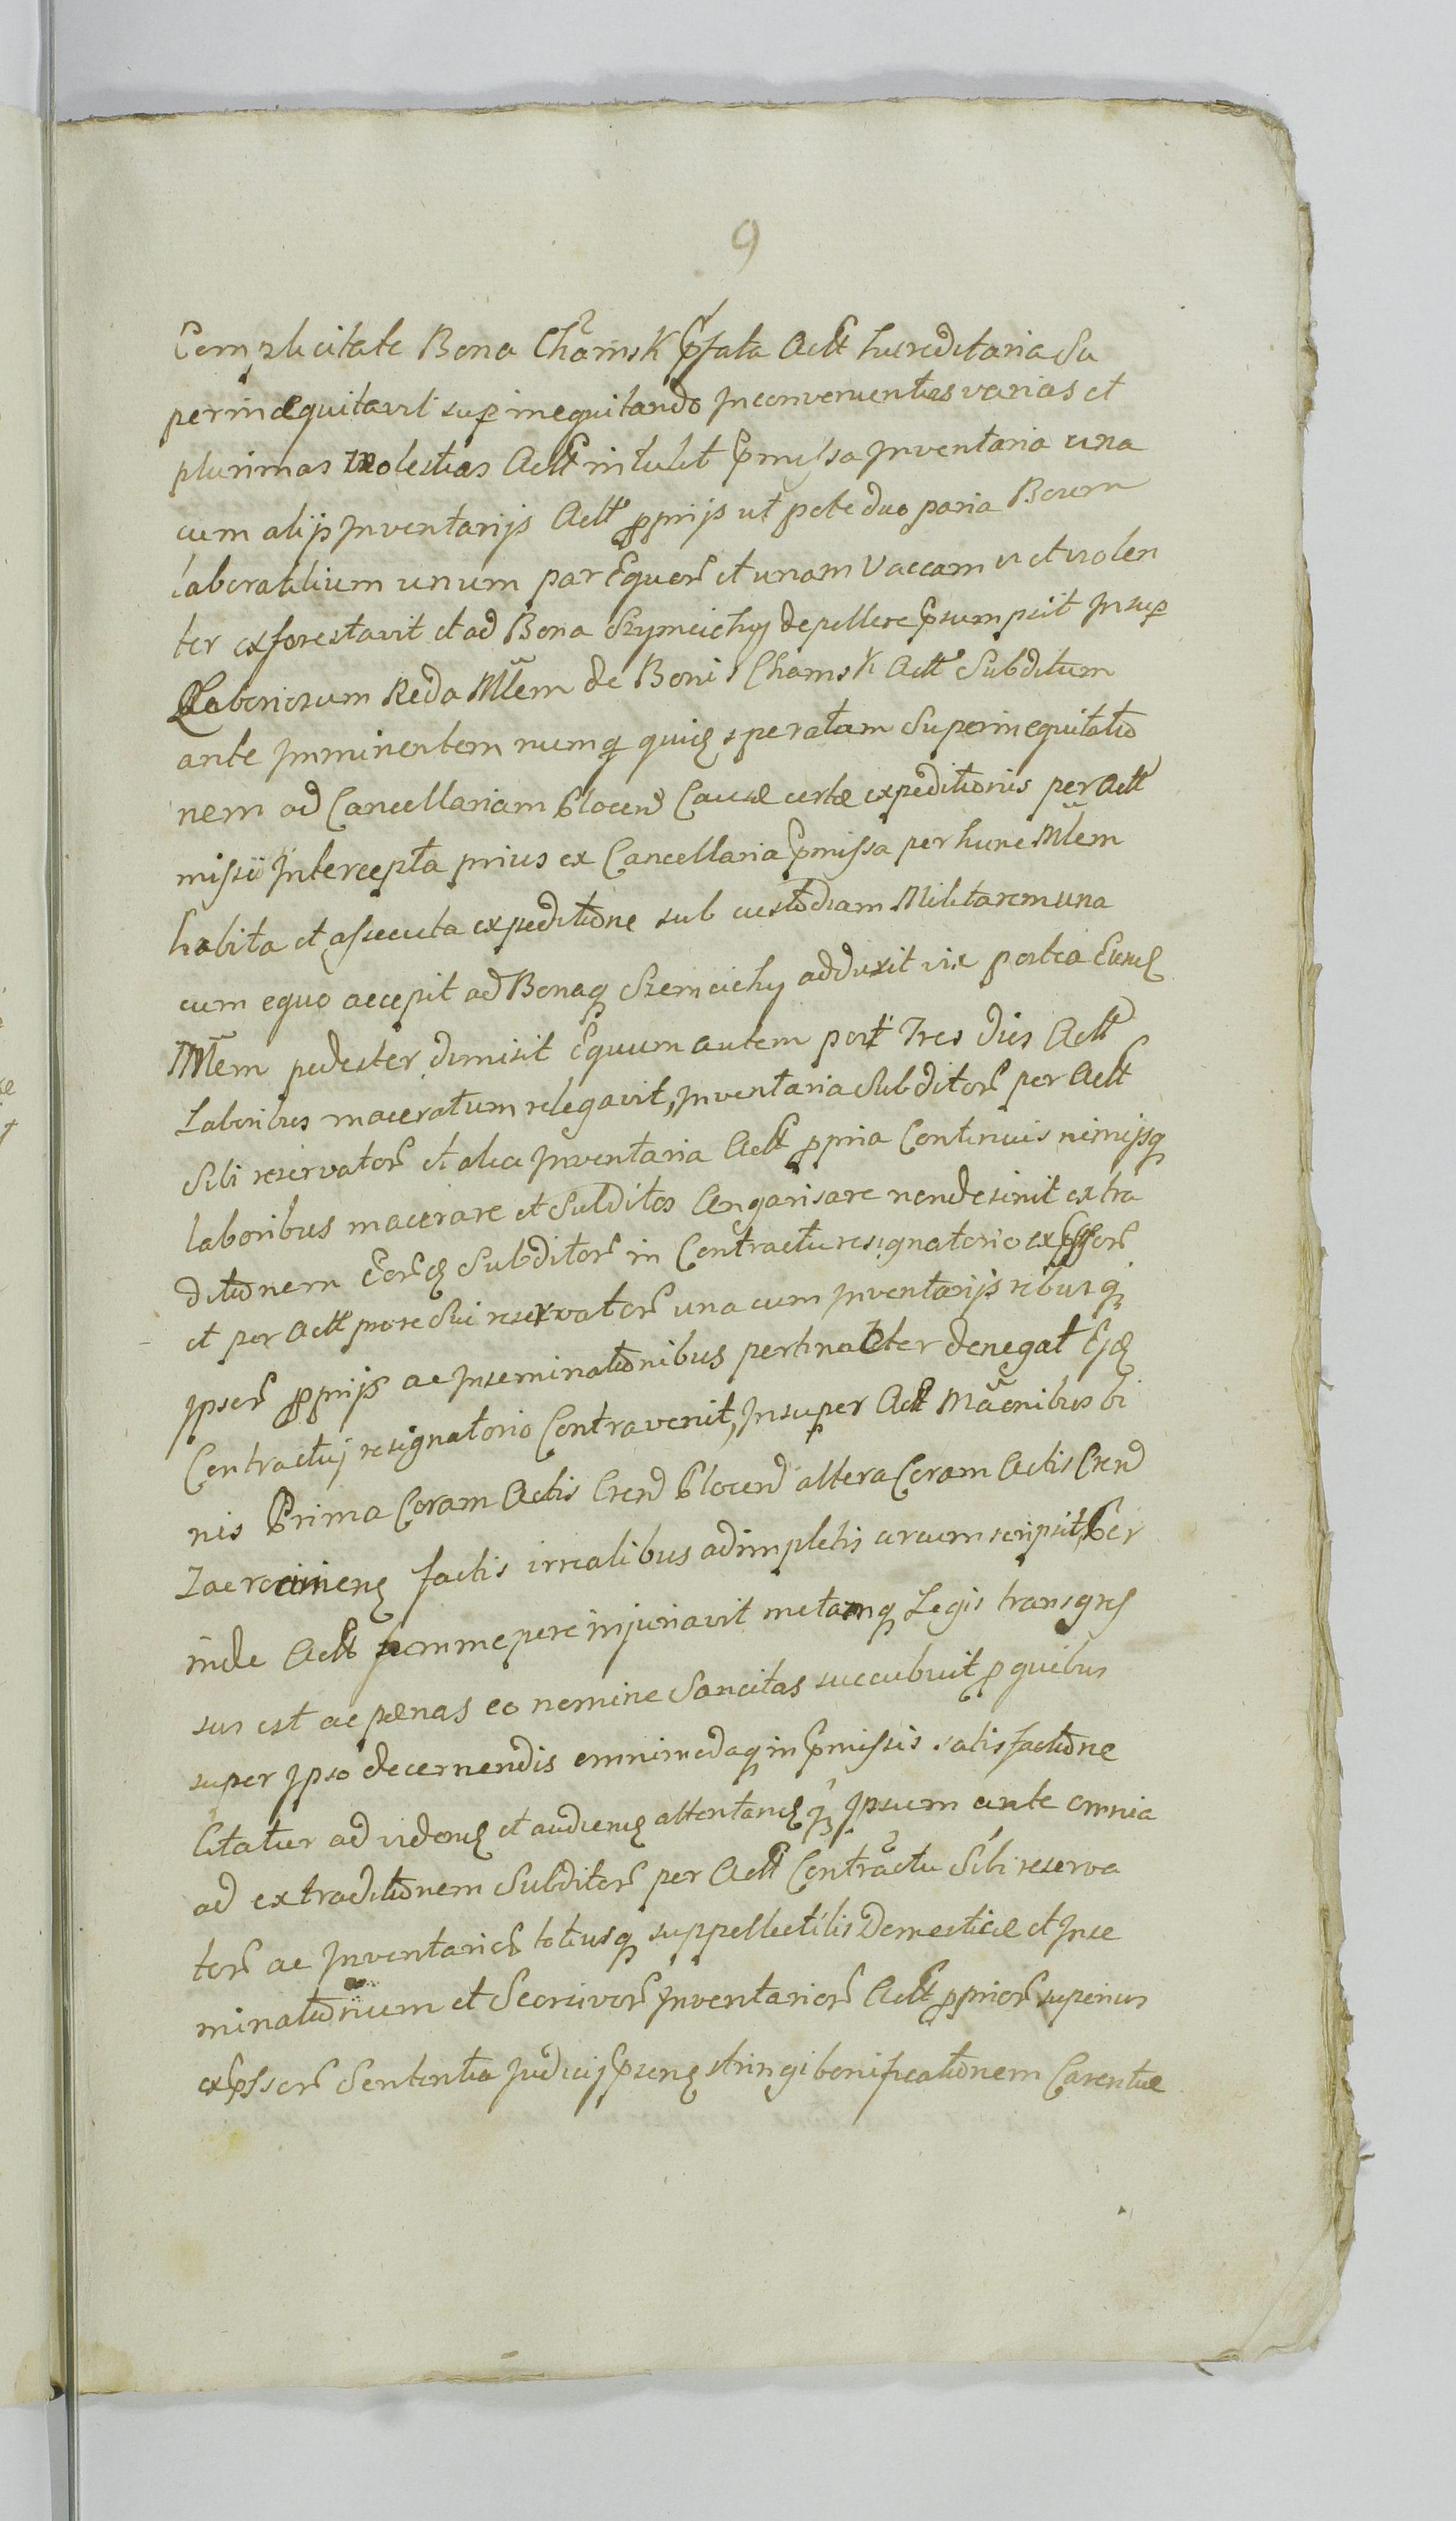 9
Complicitate Bona Chamsk Pfata Actt haereditaria Su
perinaequitavit sup inequitando Inconvenientias varias et
plurimas molestias Actt intulit Pmissa Inventaria una
cum alijs Inventarijs Actt pprijs ut pote duo paria Boum
laborabilium unum par Equor et unam Vaccam vi et violen
ter exforestavit et ad Bona Szymcichy depellere Psumpsit Insup
Laboriosum Reda Mlem de Bonis Chamsk Actt Subditum
ante Imminentem numq quius speratam Superinequitatio
nem ad Cancellariam Plocen Causae certae expeditionis per Actt
missu Intercepta prius ex Cancellaria Pmissa per hunc Mlem
habita et assecuta expeditione sub custodiam Militarem una
cum equo accepit ad Bonaq Szemcichy adduxit vix postea Eund
Mlem pedester dimisit Equum autem post Tres dies Actt
Laboribus maceratum relegavit, Inventaria Subditor per Actt
Sibi reservator et alia Inventaria Actt ppria Continuis nimijsq
laboribus macerare et Subditos Angarisare non desinit extra
ditionem Eord Subditor in Contractu resignatorio exPssor
et per Actt pro se Sui reservator una cum Inventarijs rebusq
Ipsor pprijs ac Inseminationibus pertinaciter denegat Ejd
Contractuj resignatorio Contravenit, Insuper Actt Maonibus bi
nis Prima Coram Actis Cren Plocen altera Coram Actis Cren
Zacrocimens factis irrealibus adimpletis circumscripsit, Per
inde Actt summopere injuriavit metamq Legis transgres
sus est ac paenas eo nomine Sancitas succubuit p quibus
super Ipso decernendis omnimodaq in Pmissis satisfactione
Citatur ad vidend et audiend attentand q Ipsum ante omnia
ad extraditionem Subditor per Actt Contractu Sibi reserva
tor ac Inventarior totiusq suppellectilis Domesticae et Inse
minationum et Seorsivor Inventarior Actt pprior superius
exPssor Sententia Judicij Psens stringi bonificationem Carentiae